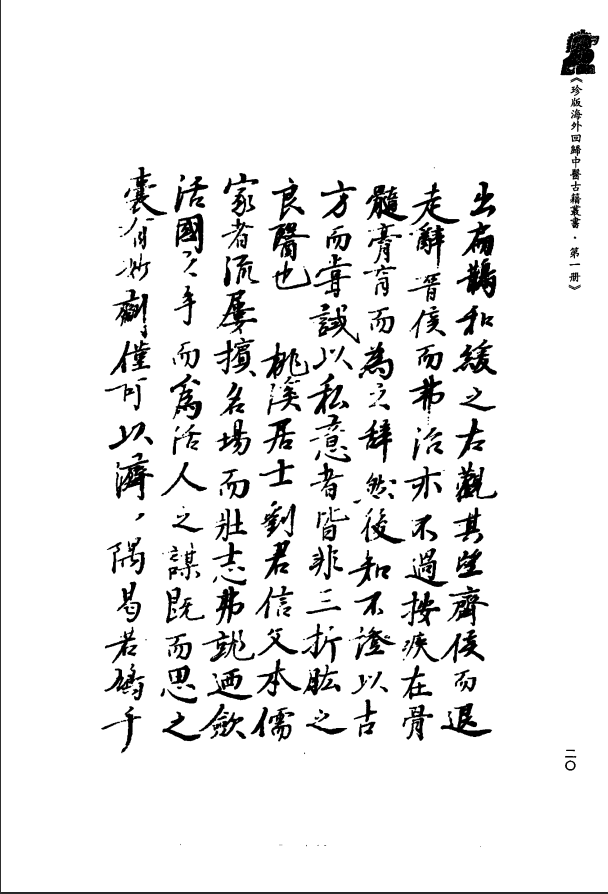 《珍版海外回歸中醫古籍叢書·第一册》
出扁鵲和緩之右觀其望齊侯而退
走辭晉侯而弗治亦不過按疾在骨
髓膏肓而為之辭然後知不澄以古
方而嘗試以私意者皆非三折肱之
良醫也　桃溪居士劉君信父本儒
家者流屢擯名場而壯志弗就迺歛
活國之手而爲活人之謀既而思之
囊有妙劑僅可以濟一隅曷若鳩千
二〇